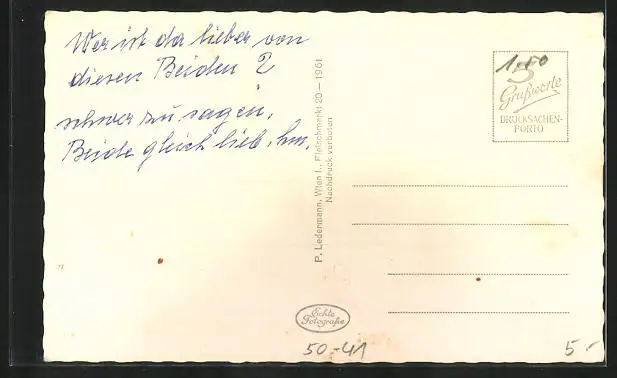 Wer ist da lieber von
diesen Beiden?
schwer zu sagen,
Beide gleich lieb, hm.
P. Ledermann, Wien I., Fleischmarkt 20 — 1951
Nachdruck verboten
1.50
5
Grußworte
DRUCKSACHEN-
PORTO
Echte
Fotografie
50-41
5.-